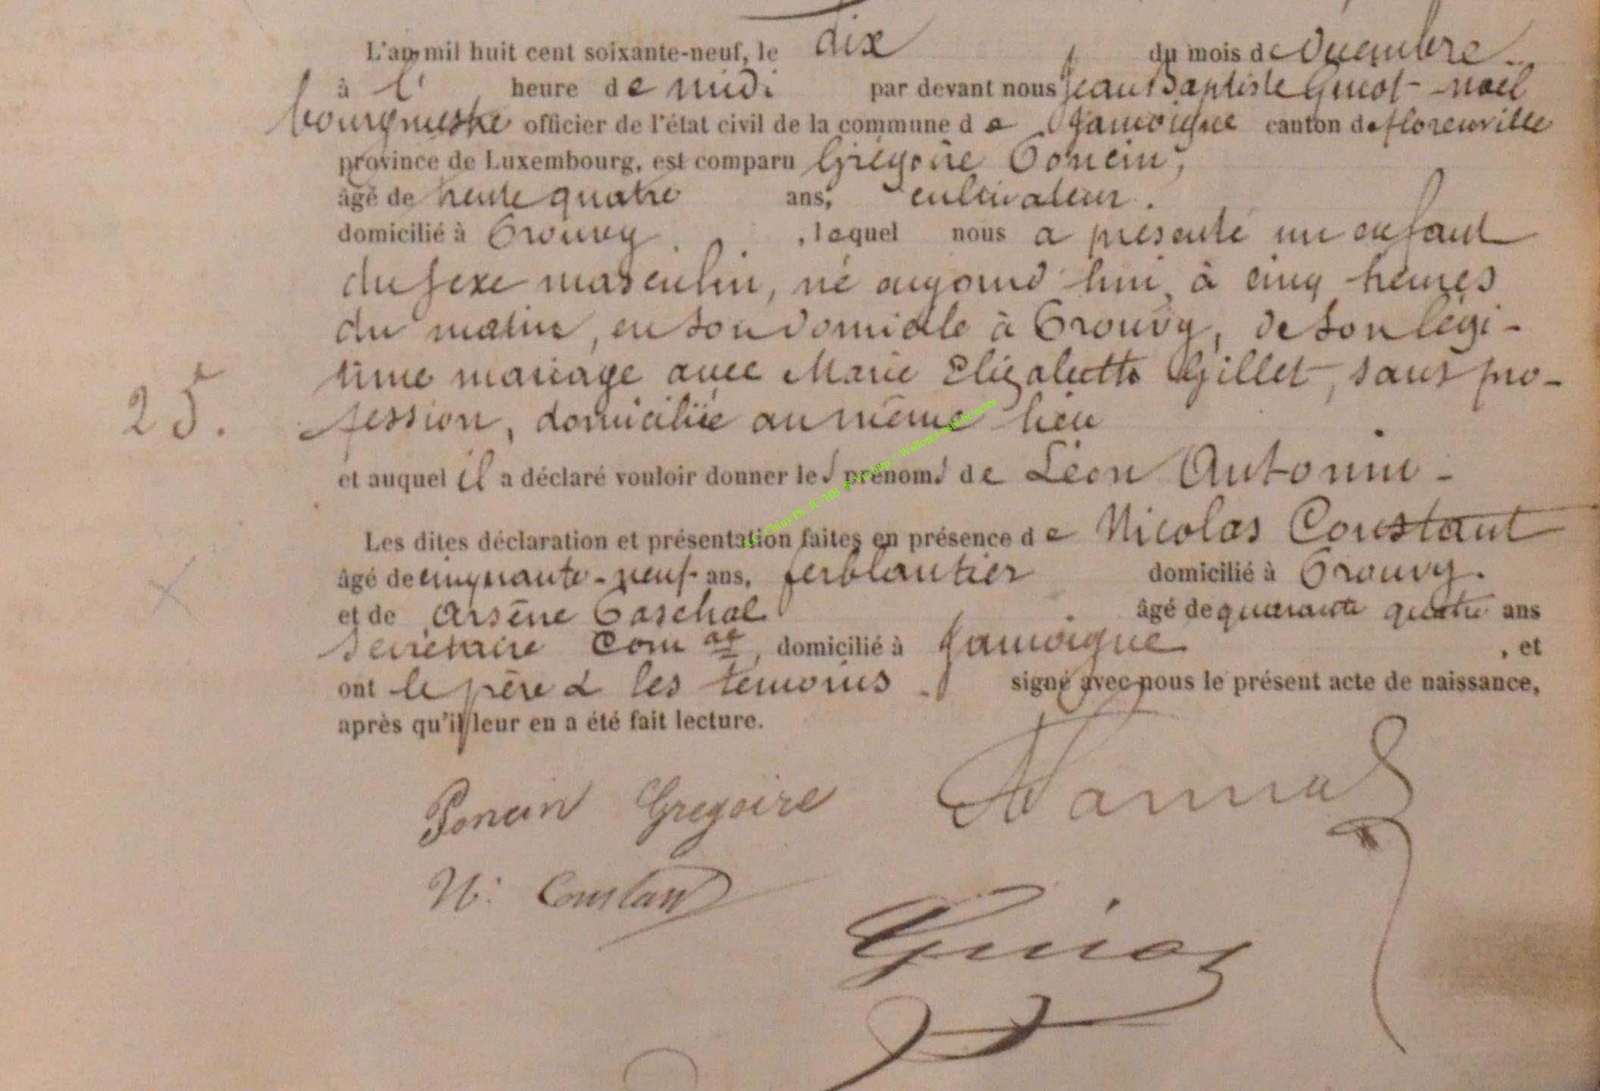 L'an mil huit cent soixante-neuf, le dix du mois de Décembre
à l' heure de midi par devant nous Jean Baptiste Guiot-Noël
bourgmestre officier de l'état civil de la commune de Jamoigne canton de florenville
province de Luxembourg, est comparu Grégoire Poncin,
âgé de trente quatre ans, cultivateur.
domicilié à Prouvy, lequel nous a présenté un enfant
du sexe masculin, né aujourd'hui, à cinq heures
du matin, en son domicile à Prouvy, de son légi-
time mariage avec Marie Elizabeth Gillet, sans pro-
25. fession, domiciliée au même lieu
et auquel il a déclaré vouloir donner les prénoms de Léon Antonin -
Les dites déclaration et présentation faites en présence de Nicolas Constant
âgé de cinquante-neuf ans, ferblantier domicilié à Prouvy.
et de Arsène Paschal âgé de quarante quatre ans
secrétaire Com al, domicilié à Jamoigne, et
ont le père & les témoins signé avec nous le présent acte de naissance,
après qu'il leur en a été fait lecture.
Poncin Gregoire
N. Constant
Guiot